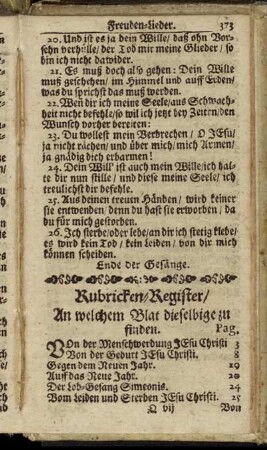 Freuden-Lieder. 373
20. Und ist es ja dein Wille / daß ohn Vor-
sehn verhülle / der Tod mir meine Glieder / so
bin ich nicht dawider.
21. Es muß doch also gehen: Dein Wille
muß geschehen / im Himmel und auff Erden /
was du sprichst das muß werden.
22. Wen dir ich meine Seele / aus Schwach-
heit nicht befehle / so wil ich jetzt bey Zeiten / den
Wunsch vorher bereiten:
23. Du wollest mein Verbrechen / O JEsu /
ja nicht rächen / und über mich / mich Armen /
ja gnädig dich erbarmen!
24. Dein Will' ist auch mein Wille / ich hal-
te dir nun stille / und diese meine Seele / ich
treulichst dir befehle.
25. Aus deinen treuen Händen / wird keiner
sie entwenden / denn du hast sie erworben / da
du für mich gestorben.
26. Ich sterbe / oder lebe / an dir ich stetig klebe /
es wird kein Tod / kein Leiden / von dir mich
können scheiden.
Ende der Gesänge.
Rubricken / Register /
An welchem Blat dieselbige zu
finden. Pag.
Von der Menschwerdung JEsu Christi 3
Von der Geburt JEsu Christi. 8
Gegen dem Neuen Jahr. 19
Auff das Neue Jahr. 20
Der Lob-Gesang Simeonis. 24
Vom Leiden und Sterben JEsu Christi. 25
Q vij Von